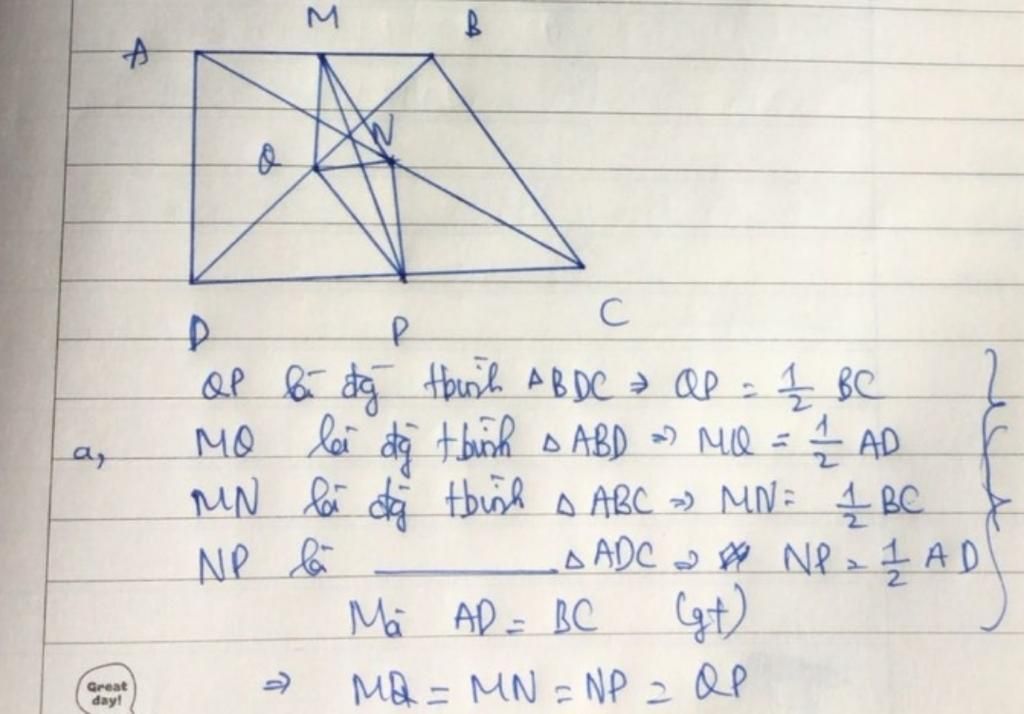 M B
A
N
Q
D P C
QP là đg tbình △BDC ⇒ QP = 1/2 BC
a, MQ là đg tbình △ ABD ⇒ MQ = 1/2 AD
MN là đg tbình △ ABC ⇒ MN = 1/2 BC
NP là ________ △ADC ⇒ NP = 1/2 AD
Mà AD = BC (gt)
⇒ MQ = MN = NP = QP
Great
day!